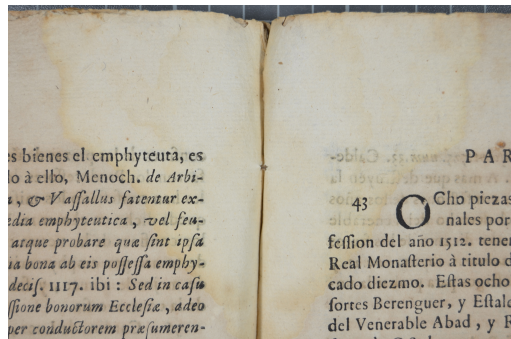 s bienes el emphyteuta, es
lo à ello, Menoch. de Arbi-
, & Vassallus fatentur ex-
edia emphyteutica, vel feu-
atque probare quæ sint ipsa
ia bona ab eis possessa emphy-
decis. 1117. ibi : Sed in casu
ssione bonorum Ecclesiæ, adeo
per conductorem præsumeren-
PAR
43 OCho piezas
nales por
fession del año 1512. tener
Real Monasterio à titulo d
cado diezmo. Estas ocho
fortes Berenguer, y Estald
del Venerable Abad, y R